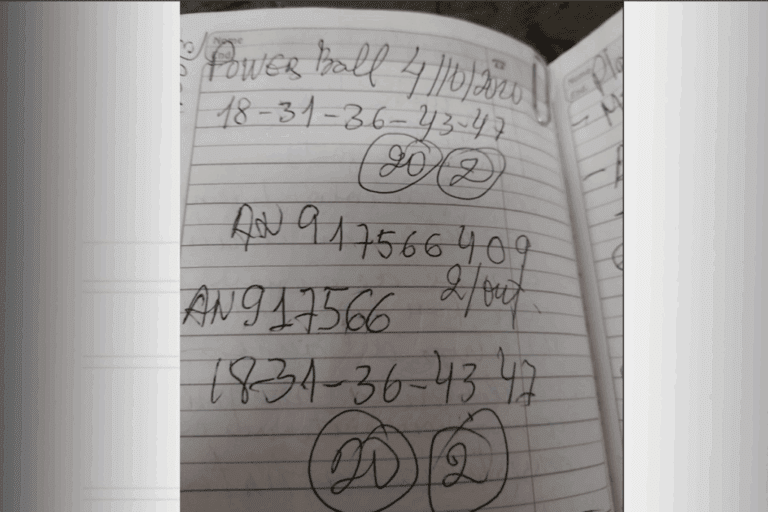 Power Ball 4/10/2020
18-31-36-43-47
20 2
AN 917566409
2/out.
AN917566
18-31-36-43 47
20 2